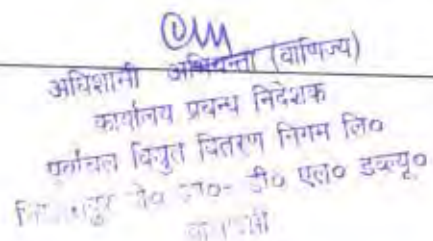 अधिशासी अभियन्ता (वाणिज्य)
कार्यालय प्रबन्ध निदेशक
पूर्वांचल विद्युत वितरण निगम लि०
डी० एल० डब्ल्यू०